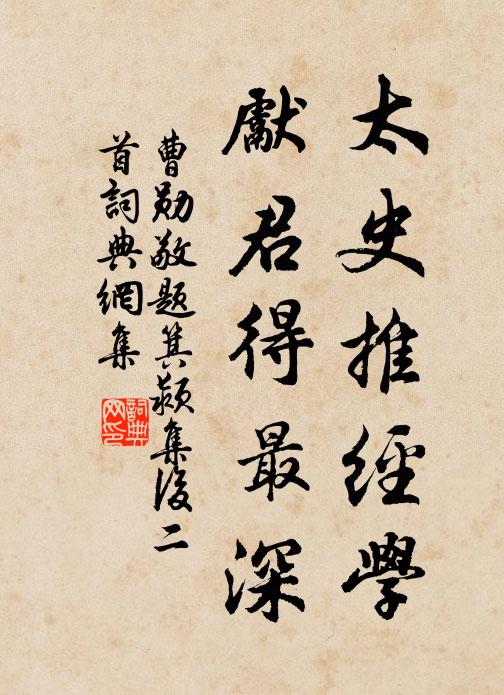 太史推經學
獻君得最深
曹勛敬題箕潁集後二
首詞典網集
詞典
网印